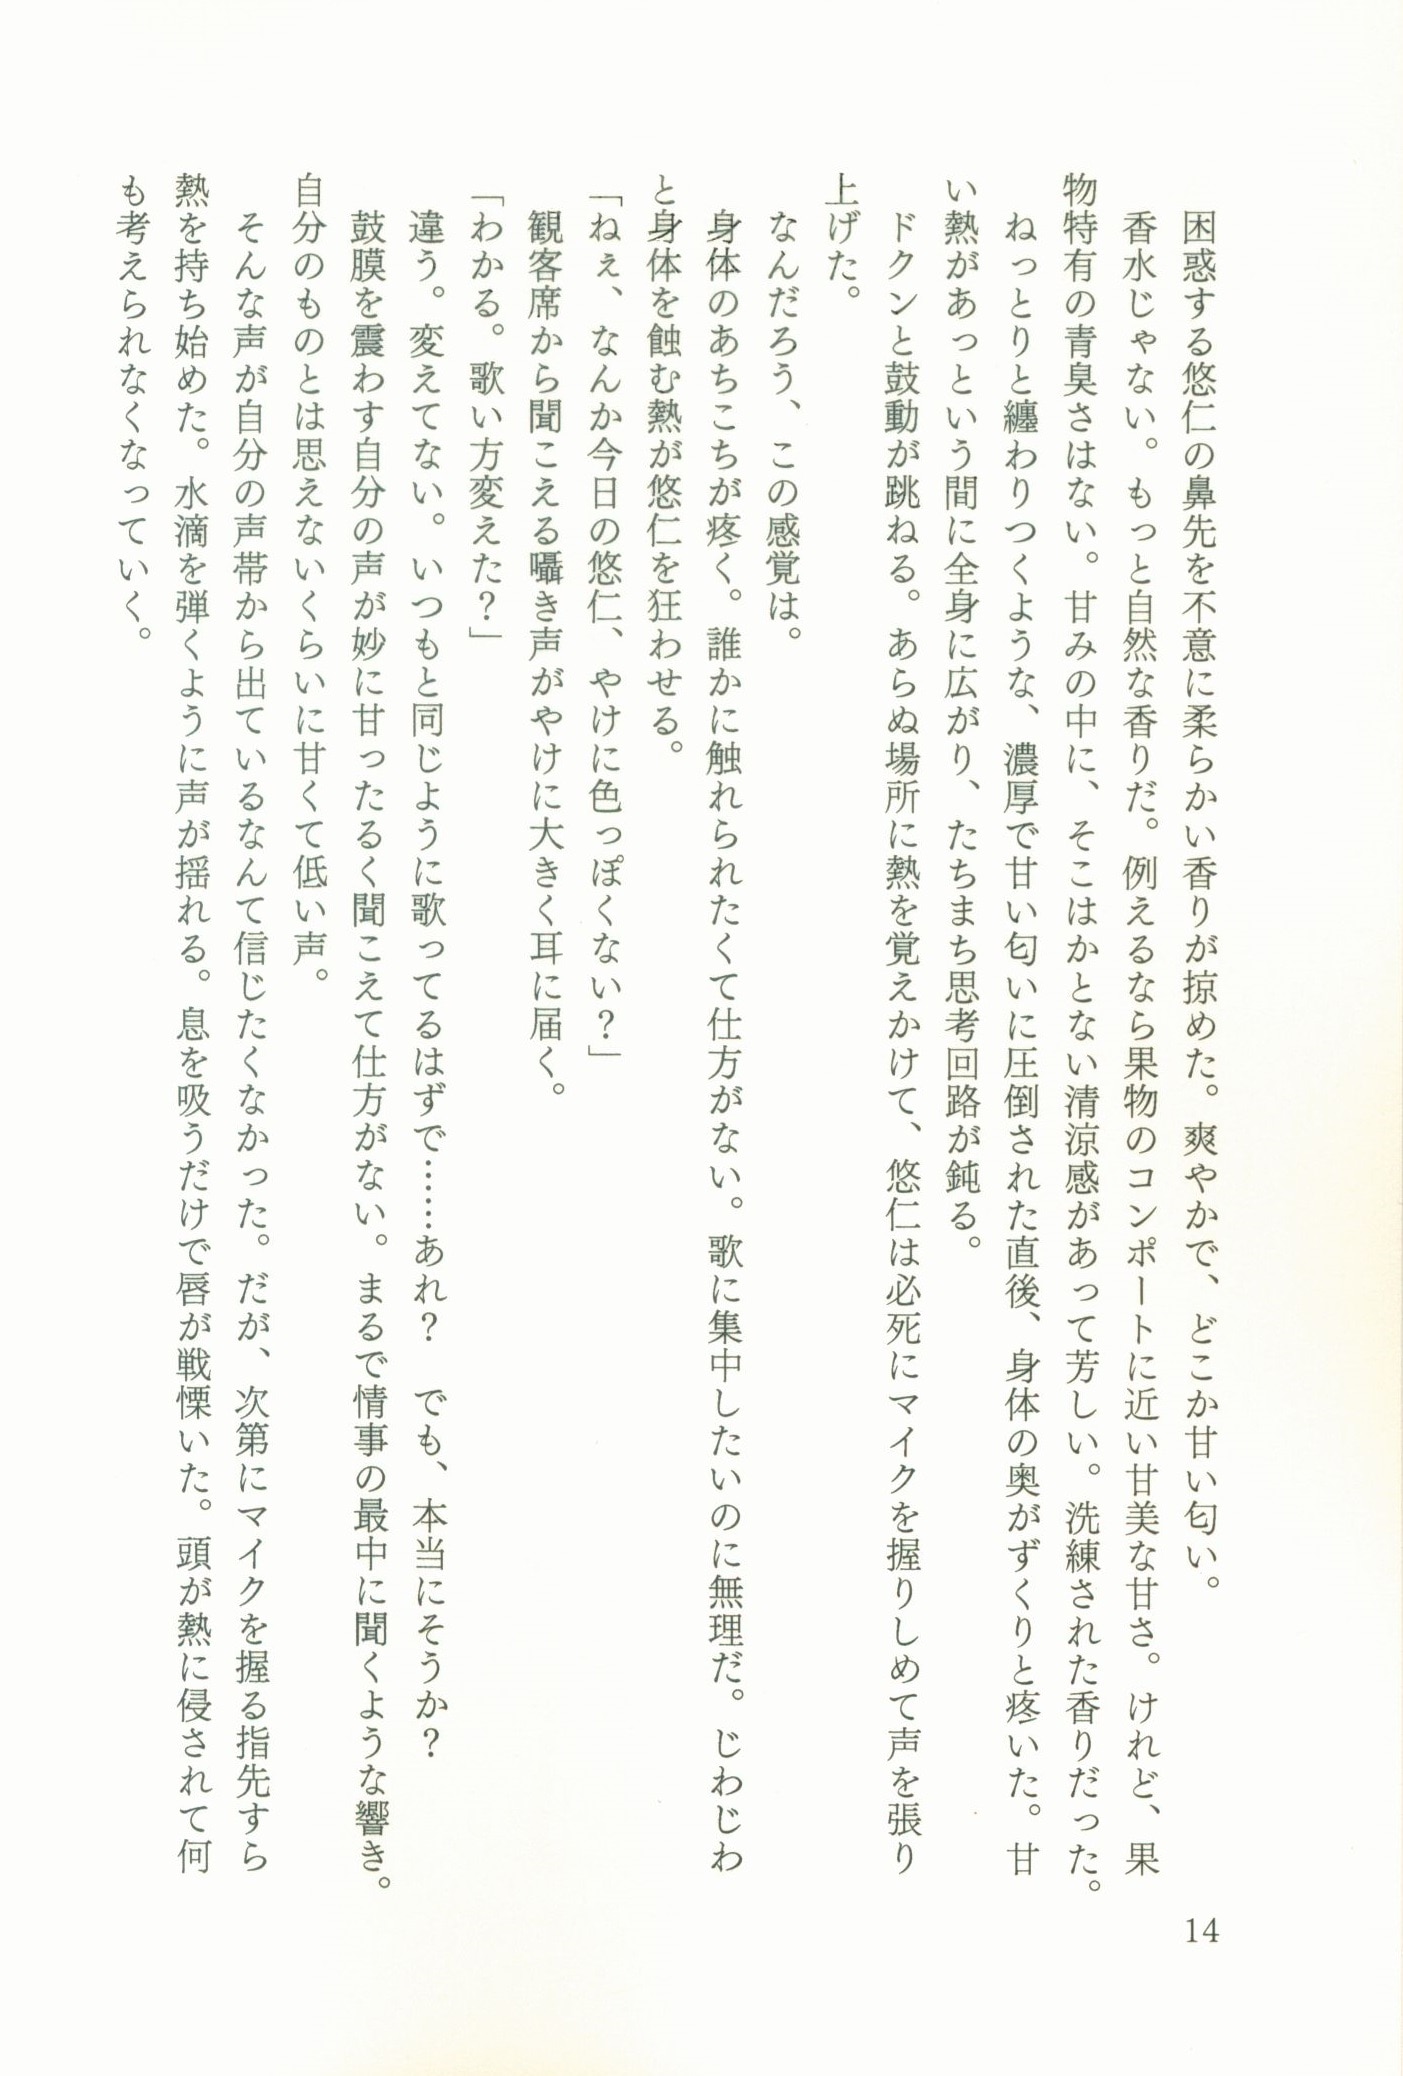 困惑する悠仁の鼻先を不意に柔らかい香りが掠めた。爽やかで、どこか甘い匂い。
香水じゃない。もっと自然な香りだ。例えるなら果物のコンポートに近い甘美な甘さ。けれど、果
物特有の青臭さはない。甘みの中に、そこはかとない清涼感があって芳しい。洗練された香りだった。
ねっとりと纏わりつくような、濃厚で甘い匂いに圧倒された直後、身体の奥がずくりと疼いた。甘
い熱があっという間に全身に広がり、たちまち思考回路が鈍る。
ドクンと鼓動が跳ねる。あらぬ場所に熱を覚えかけて、悠仁は必死にマイクを握りしめて声を張り
上げた。
なんだろう、この感覚は。
身体のあちこちが疼く。誰かに触れられたくて仕方がない。歌に集中したいのに無理だ。じわじわ
と身体を蝕む熱が悠仁を狂わせる。
「ねぇ、なんか今日の悠仁、やけに色っぽくない？」
観客席から聞こえる囁き声がやけに大きく耳に届く。
「わかる。歌い方変えた？」
違う。変えてない。いつもと同じように歌ってるはずで……あれ？　でも、本当にそうか？
鼓膜を震わす自分の声が妙に甘ったるく聞こえて仕方がない。まるで情事の最中に聞くような響き。
自分のものとは思えないくらいに甘くて低い声。
そんな声が自分の声帯から出ているなんて信じたくなかった。だが、次第にマイクを握る指先すら
熱を持ち始めた。水滴を弾くように声が揺れる。息を吸うだけで唇が戦慄いた。頭が熱に侵されて何
も考えられなくなっていく。
14